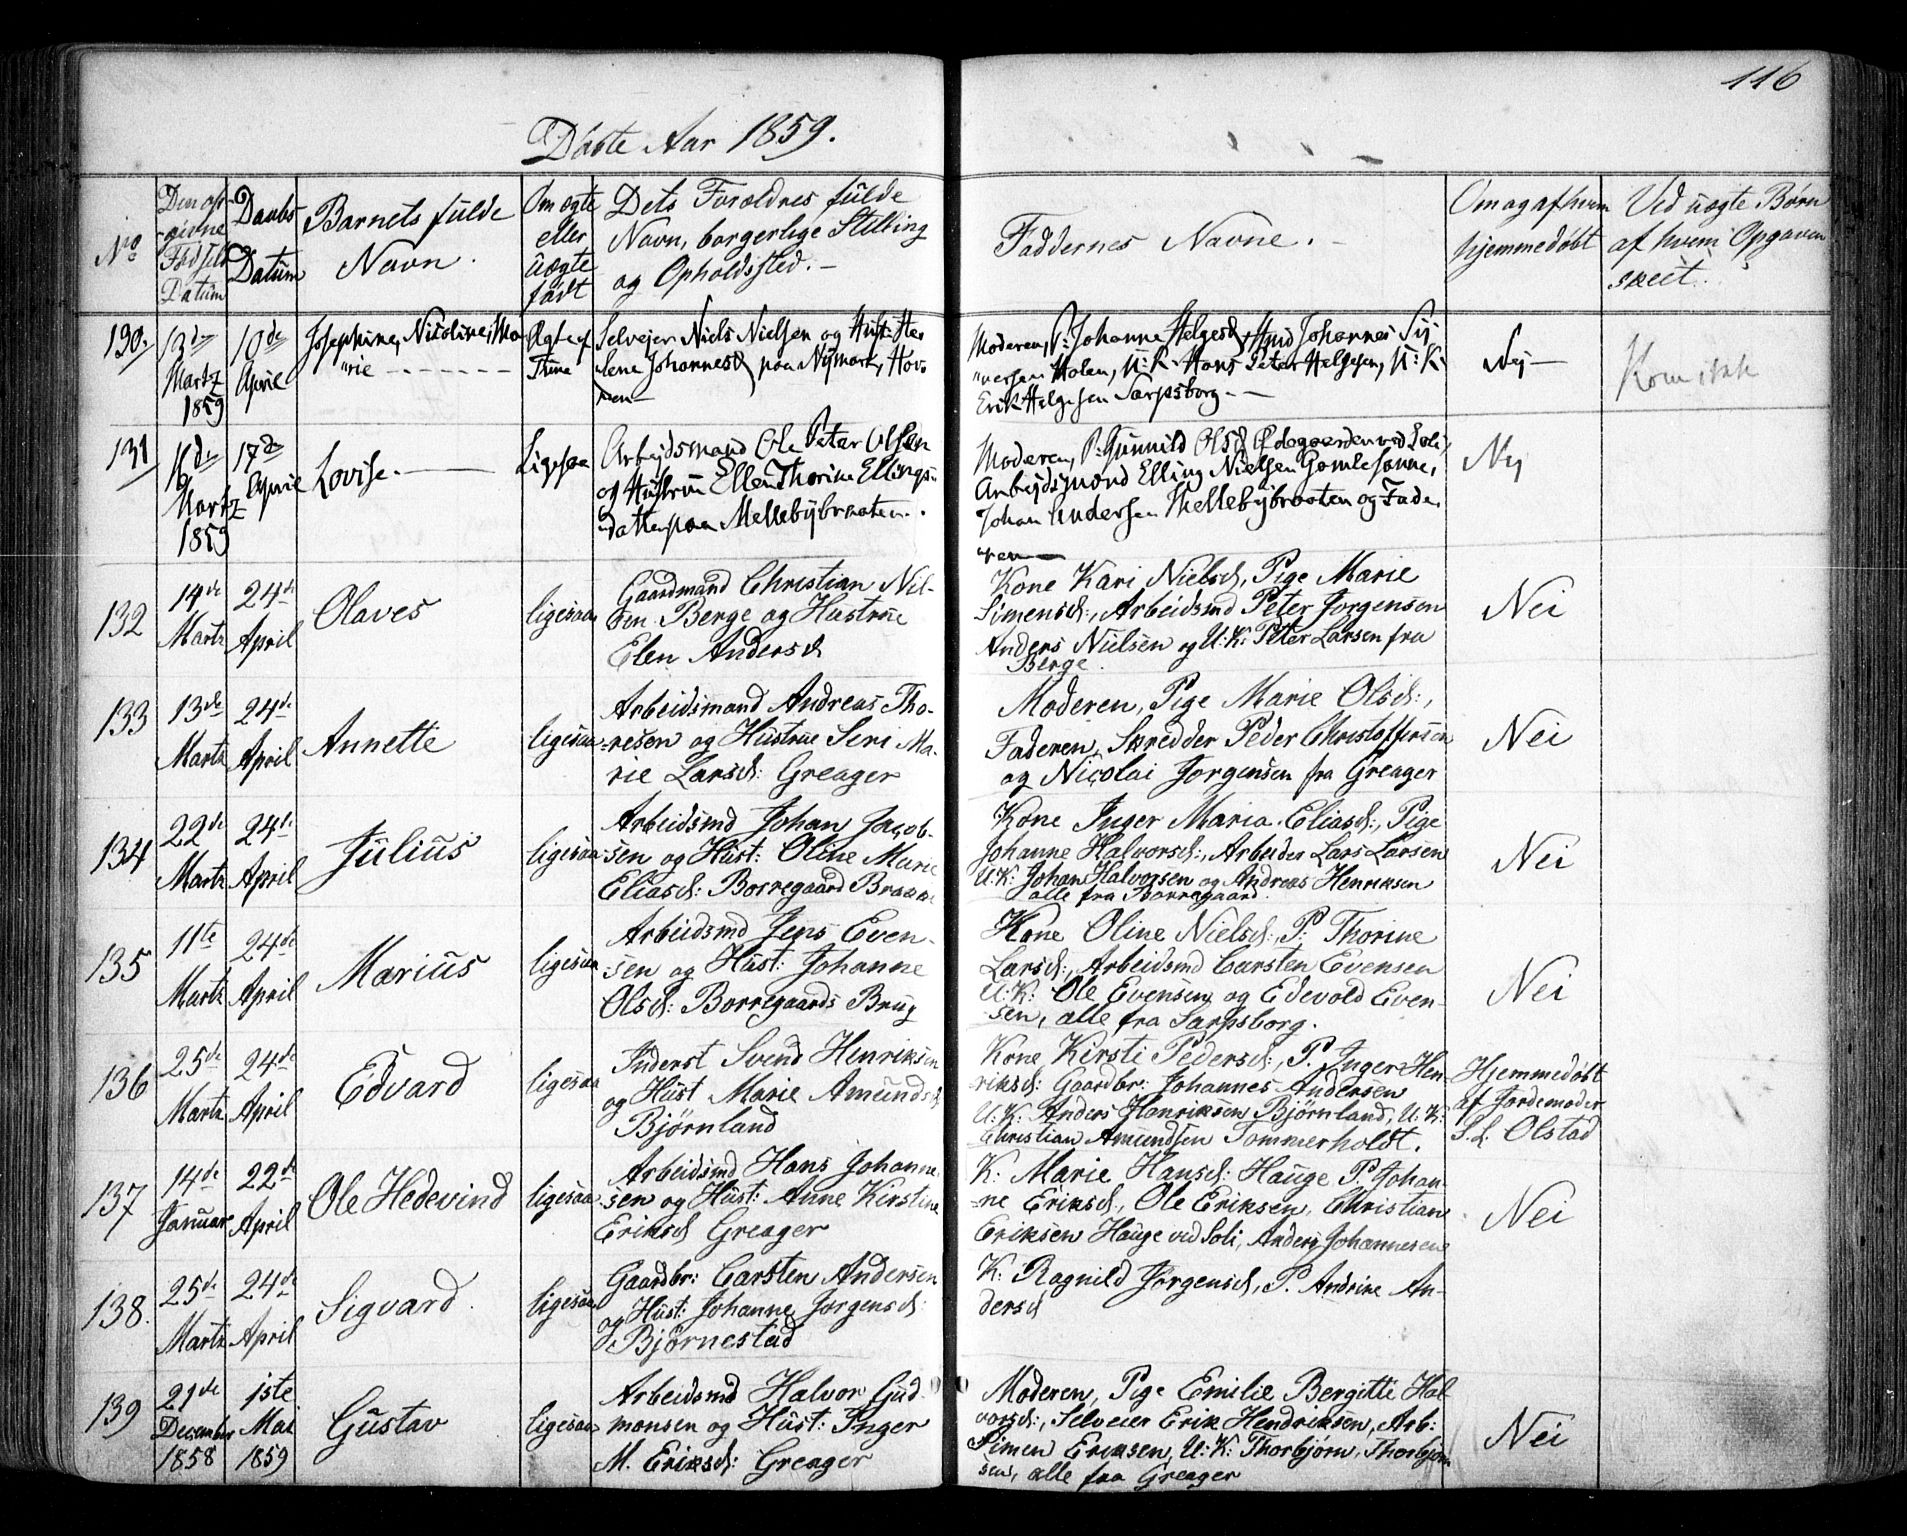 116
Döbte Aar 1859.
No
Den op-
givne
Födsels
Datum
Daabs
Datum
Barnets fulde
Navn.
Om ægte
eller
uægte
födt
Dets Forældres fulde
Navn, borgerlige Stilling
og Opholdssted.
Faddernes Navne.
Om og af hvem
hjemmedöbt
Ved uægte Börn
af hvem Opgaven
skeet.
130.
13de
Martz
1859
10de
April
Josephine, Nicoline, Ma-
rie
Ægte af
Selvejer Niels Nielsen og Hust: He-
lene Johannesd paa Nymark, Hov-
Moderen, P: Johanne Helgesd, Johannes Sy-
versen Holen, U: K: Hans Peter Helgesen, U: K:
Erik Helgesen Sarpsborg.
Nej
131
16de
Martz
1859
17de
April
Lovise.
Ligesaa
Arbejdsmand Ole Peter Olsen
og Hustrue Ellen Thorine Ellings-
datter paa Mellebybraaten.
Moderen, P: Gunnild Olsd Ödegaarden ved Soli,
Arbejdsmand Elling Nielsen
Johan Andersen Mellebybraaten og Fade-
ren
Nej
132
14de
Martz
24de
April
Olaves
ligesaa
Gaardmand Christian Nil-
sen Berge og Hustrue
Elen Andersd
Kone Kari Nielsd, Pige Marie
Simensd:, Arbeidsmd Peter Jorgensen
Anders Nielsen og U: K: Peter Larsen fra
Berge.
Nei
133
13de
Martz
24de
April
Annette
ligesaa
Arbeidsmand Andreas Tho-
resen og Hustrue Seri Ma-
rie Larsd: Greager
Moderen, Pige Marie Olsd:,
Faderen, Skredder Peder Christoffersen
og Nicolai Jorgensen fra Greager
Nei
134
22de
Martz
24de
April
Julius
ligesaa
Arbeidsmd Johan Jacob-
sen og Hust: Oline Marie
Eliasd: Borregaard
Kone Inger Maria Eliasd:, Pige
Johanne Halvorsd:, Arbeider Lars Larsen
U: K: Johan Halvorsen og Andreas Henriksen
alle fra Borregaard.
Nei
135
11te
Martz
24de
April
Marius
ligesaa
Arbeidsmd Jens Even-
sen og Hust: Johanne
Olsd: Borregaards Brug
Kone Oline Nielsd:, P. Thorine
Larsd:, Arbeidsmd Carsten Evensen
U: K: Ole Evensen og Edevold Even-
sen, alle fra Sarpsborg.
Nei
136
25de
Martz
24de
April
Edvard
ligesaa
Inderst Svend Henriksen
og Hust Marie Amundsd
Björnland
Kone Kersti Pedersd:, P. Inger Hen-
riksd: Gaardbr: Johannes Andersen
U: K: Anders Henriksen Björnland, U: K:
Christian Amundsen Tommerholdt.
Hjemmedöbt
af Jordemoder
S. L. Olstad
137
14de
Januar
22de
April
Ole Hedevind
ligesaa
Arbeidsmd Hans Johanne-
sen og Hust: Anne Kirstine
Eriksd Greager
K: Marie Hansd: Hauge P. Johan-
ne Eriksd:, Ole Eriksen, Christian
Eriksen Hauge ved Soli, Anders Johannesen
Nei
138.
25de
Martz
24de
April
Sigvard.
ligesaa
Gaardbr: Carsten Andersen
og Hust: Johanne Jorgensd:
Björnestad
K: Ragnild Jörgensd, P. Andrine An-
dersd
139
21de
December
1858
1ste
Mai
1859
Gustav
ligesaa
Arbeidsmd Halvor Gud-
monsen og Hust: Inger
M. Eriksd: Greager
Moderen, Pige Emilie Bergitte Hal-
vorsd:, Selveier Erik Hendriksen, Arb:
Simen Eriksen, U: K: Thorbjörn Thorbjorn-
sen, alle fra Greager
Nei